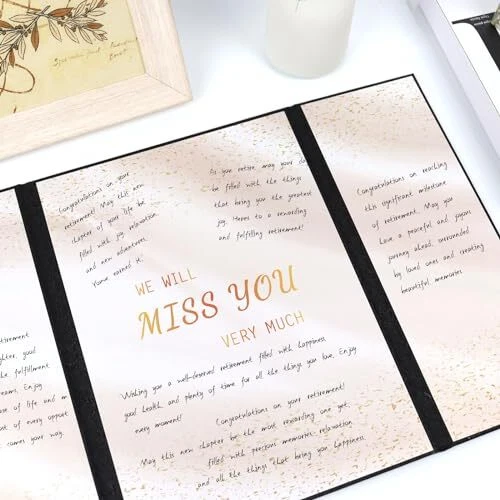 Congratulations on your
retirement! May this new
chapter of your life be
filled with joy, relaxation,
and new adventures.
earned it!
As you retire, may your days
be filled with the things
that bring you the greatest
joy. Here's to a rewarding
and fulfilling retirement!
WE WILL
MISS YOU
VERY MUCH
Wishing you a well-deserved retirement filled with happiness
good health, and plenty of time for all the things you love. Enjoy
every moment!
Congratulations on your retirement!
May this new chapter be the most rewarding one yet,
filled with precious memories, relaxation,
and all the things that bring you happiness.
Congratulations on reaching
this significant milestone
of retirement. May you
have a peaceful and joyous
journey ahead, surrounded
by loved ones and creating
beautiful memories.
retirement
good
fulfillment
Enjoy
of life and
of every
comes your way.